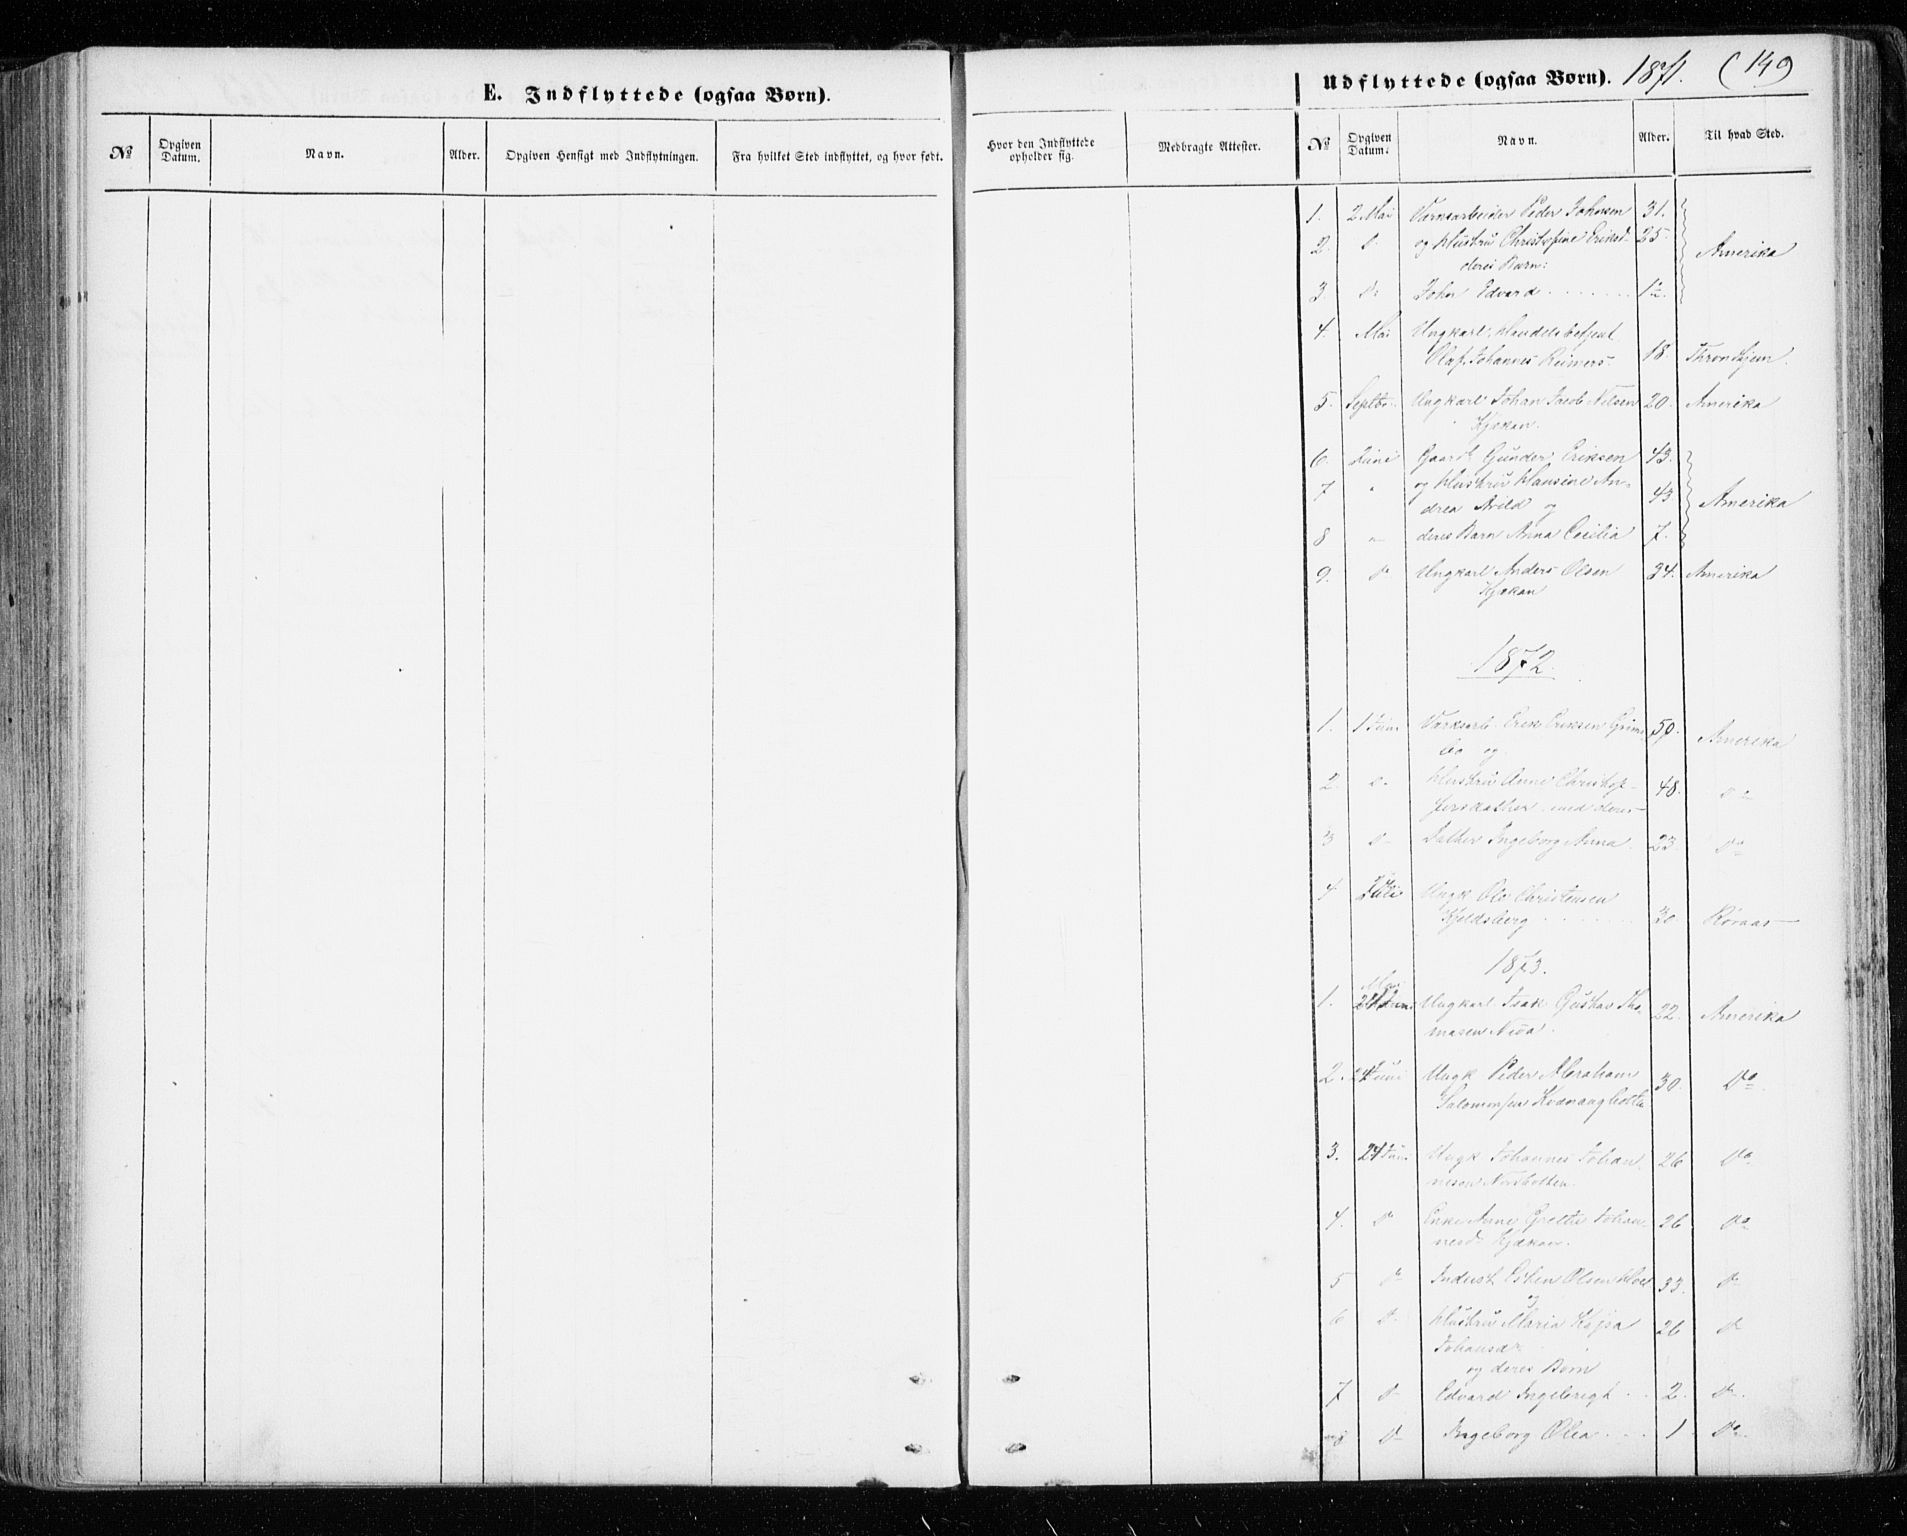 E. Indflyttede (ogsaa Børn).
Udflyttede (ogsaa Børn). 1871. (149
№ Opgiven Datum. Navn. Alder. Opgiven Hensigt med Indflytningen. Fra hvilket Sted indflyttet, og hvor født. Hvor den Indflyttede opholder sig. Medbragte Attester. № Opgiven Datum. Navn. Alder. Til hvad Sted.
1. 2 Mai Værksarbeider Peder Johnsen 31.
2. D og Hustru Christofine Eriksd 25. Amerika
deres Barn:
3. D: John Edvard 1
4. Mai Ungkarl, Handelsbetjent
Oluf Johannes Reimers 18. Throndhjem.
5. Septbr. Ungkarl Johan Jacob Nilsen 20. Amerika
Kjækan.
6. Juni Gaardb Gunder Eriksen 43.
7 " og Hustru Hansine An-
drea Arild og 43 Amerika
8 " deres Barn Anna Cecilia 7.
9. D Ungkarl Anders Olsen 24. Amerika
Kjækan
1872.
1. 1 Juni Værksarb. Erik Eriksen Grims- 50. Amerika
bo og
2. D Hustru Anne Christop-
fersdatter med deres 48. Do
3 D Datter Ingeborg Anna 23. Do
4 Juli Ungk Ole Christensen
Kjeldsberg 30. Røraas
1873.
Mai
1. 24 Ungkarl Isak Gustav Tho- 22. Amerika
masen Niva.
2. 24 Juni Ungk Peder Abraham 30. Do
Salomonsen Kvænangbotten
3. 24 Juni Ungk Johannes Johan- 26 Do
nesen Nordbotten.
4. D Enke Anne Grethe Johan- 26 Do
nesd Kjækan.
5 D Inderst Esten Olsen Hoel 33. D
og
6 D Hustru Maria Kajsa 26 D
Johansd.
og deres Børn
7 D Edvard Ingebrigt 2. D
8 D Ingeborg Olea 1 Do